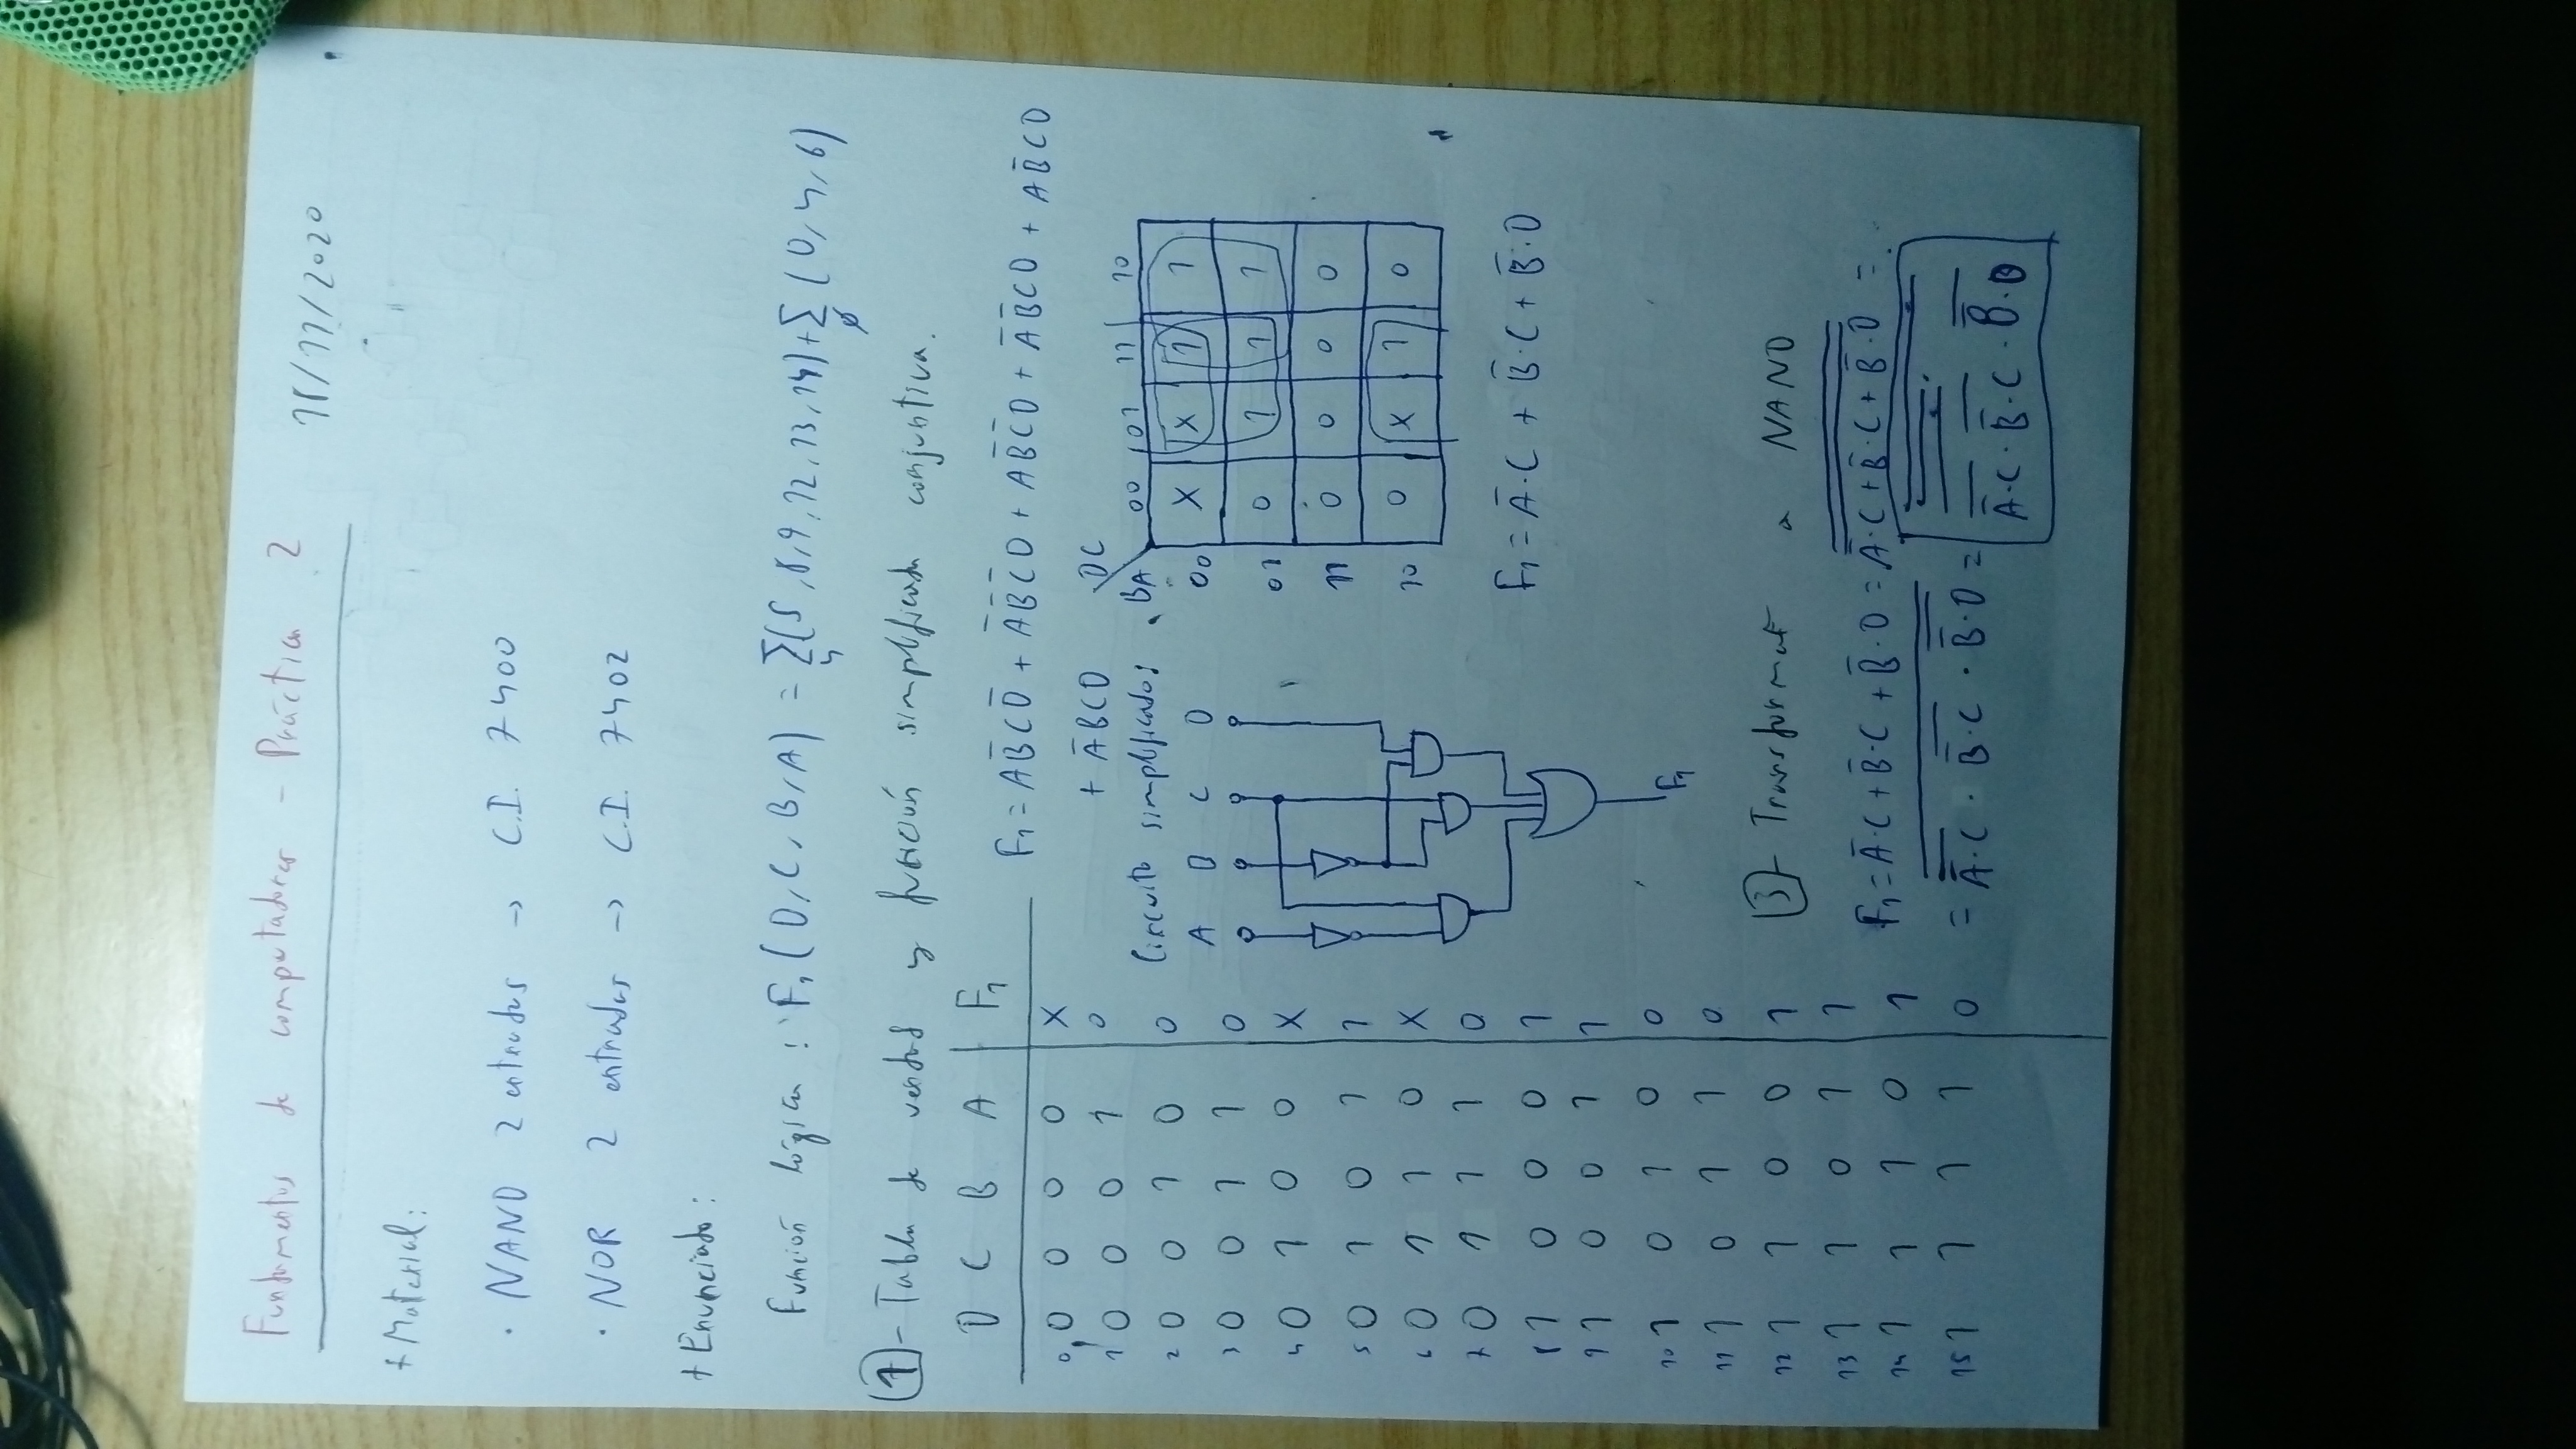 Fundamentos de computadores - Práctica 2
18/11/2020
+ Material:
· NAND 2 entradas -> C.I. 7400
· NOR 2 entradas -> C.I. 7402
+ Enunciado:
Función lógica: F₁(D,C,B,A) = Σ₄(5,8,9,12,13,14)+Σ∅(0,4,6)
①- Tabla de verdad y función simplificada conjuntiva.
D C B A | F₁
0, 0 0 0 0 X
1 0 0 0 1 0
2 0 0 1 0 0
3 0 0 1 1 0
4 0 1 0 0 X
5 0 1 0 1 1
6 0 1 1 0 X
7 0 1 1 1 0
8 1 0 0 0 1
9 1 0 0 1 1
10 1 0 1 0 0
11 1 0 1 1 0
12 1 1 0 0 1
13 1 1 0 1 1
14 1 1 1 0 1
15 1 1 1 1 0
F₁ = AB̅CD̅ + A̅B̅C̅D + AB̅C̅D + A̅B̅CD + AB̅CD
+ A̅BCD
Circuito simplificado:
A B C D
F₁
DC
BA 00 01 11 10
00 X X 1 1
01 0 1 1 1
11 0 0 0 0
10 0 X 1 0
F₁ = A̅·C + B̅·C + B̅·D
③- Transformar a NAND
F₁ = A̅·C + B̅·C + B̅·D = A̅·C + B̅·C + B̅·D =
= A̅·C · B̅·C · B̅·D =
A̅·C · B̅·C · B̅·D